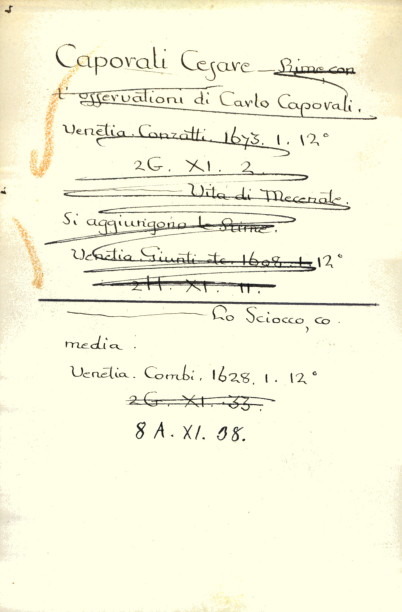 Caporali Cesare — Rime con
l'osservationi di Carlo Caporali.
Venetia. Conzatti. 1673. 1. 12°
2G. XI. 2.
— Vita di Mecenate.
Si aggiungono le Rime.
Venetia. Giunti etc. 1608. 1. 12°
2H. XI. 11.
— Lo Sciocco, co-
media.
Venetia. Combi. 1628. 1. 12°
2G. XI. 33.
8 A. XI. 38.